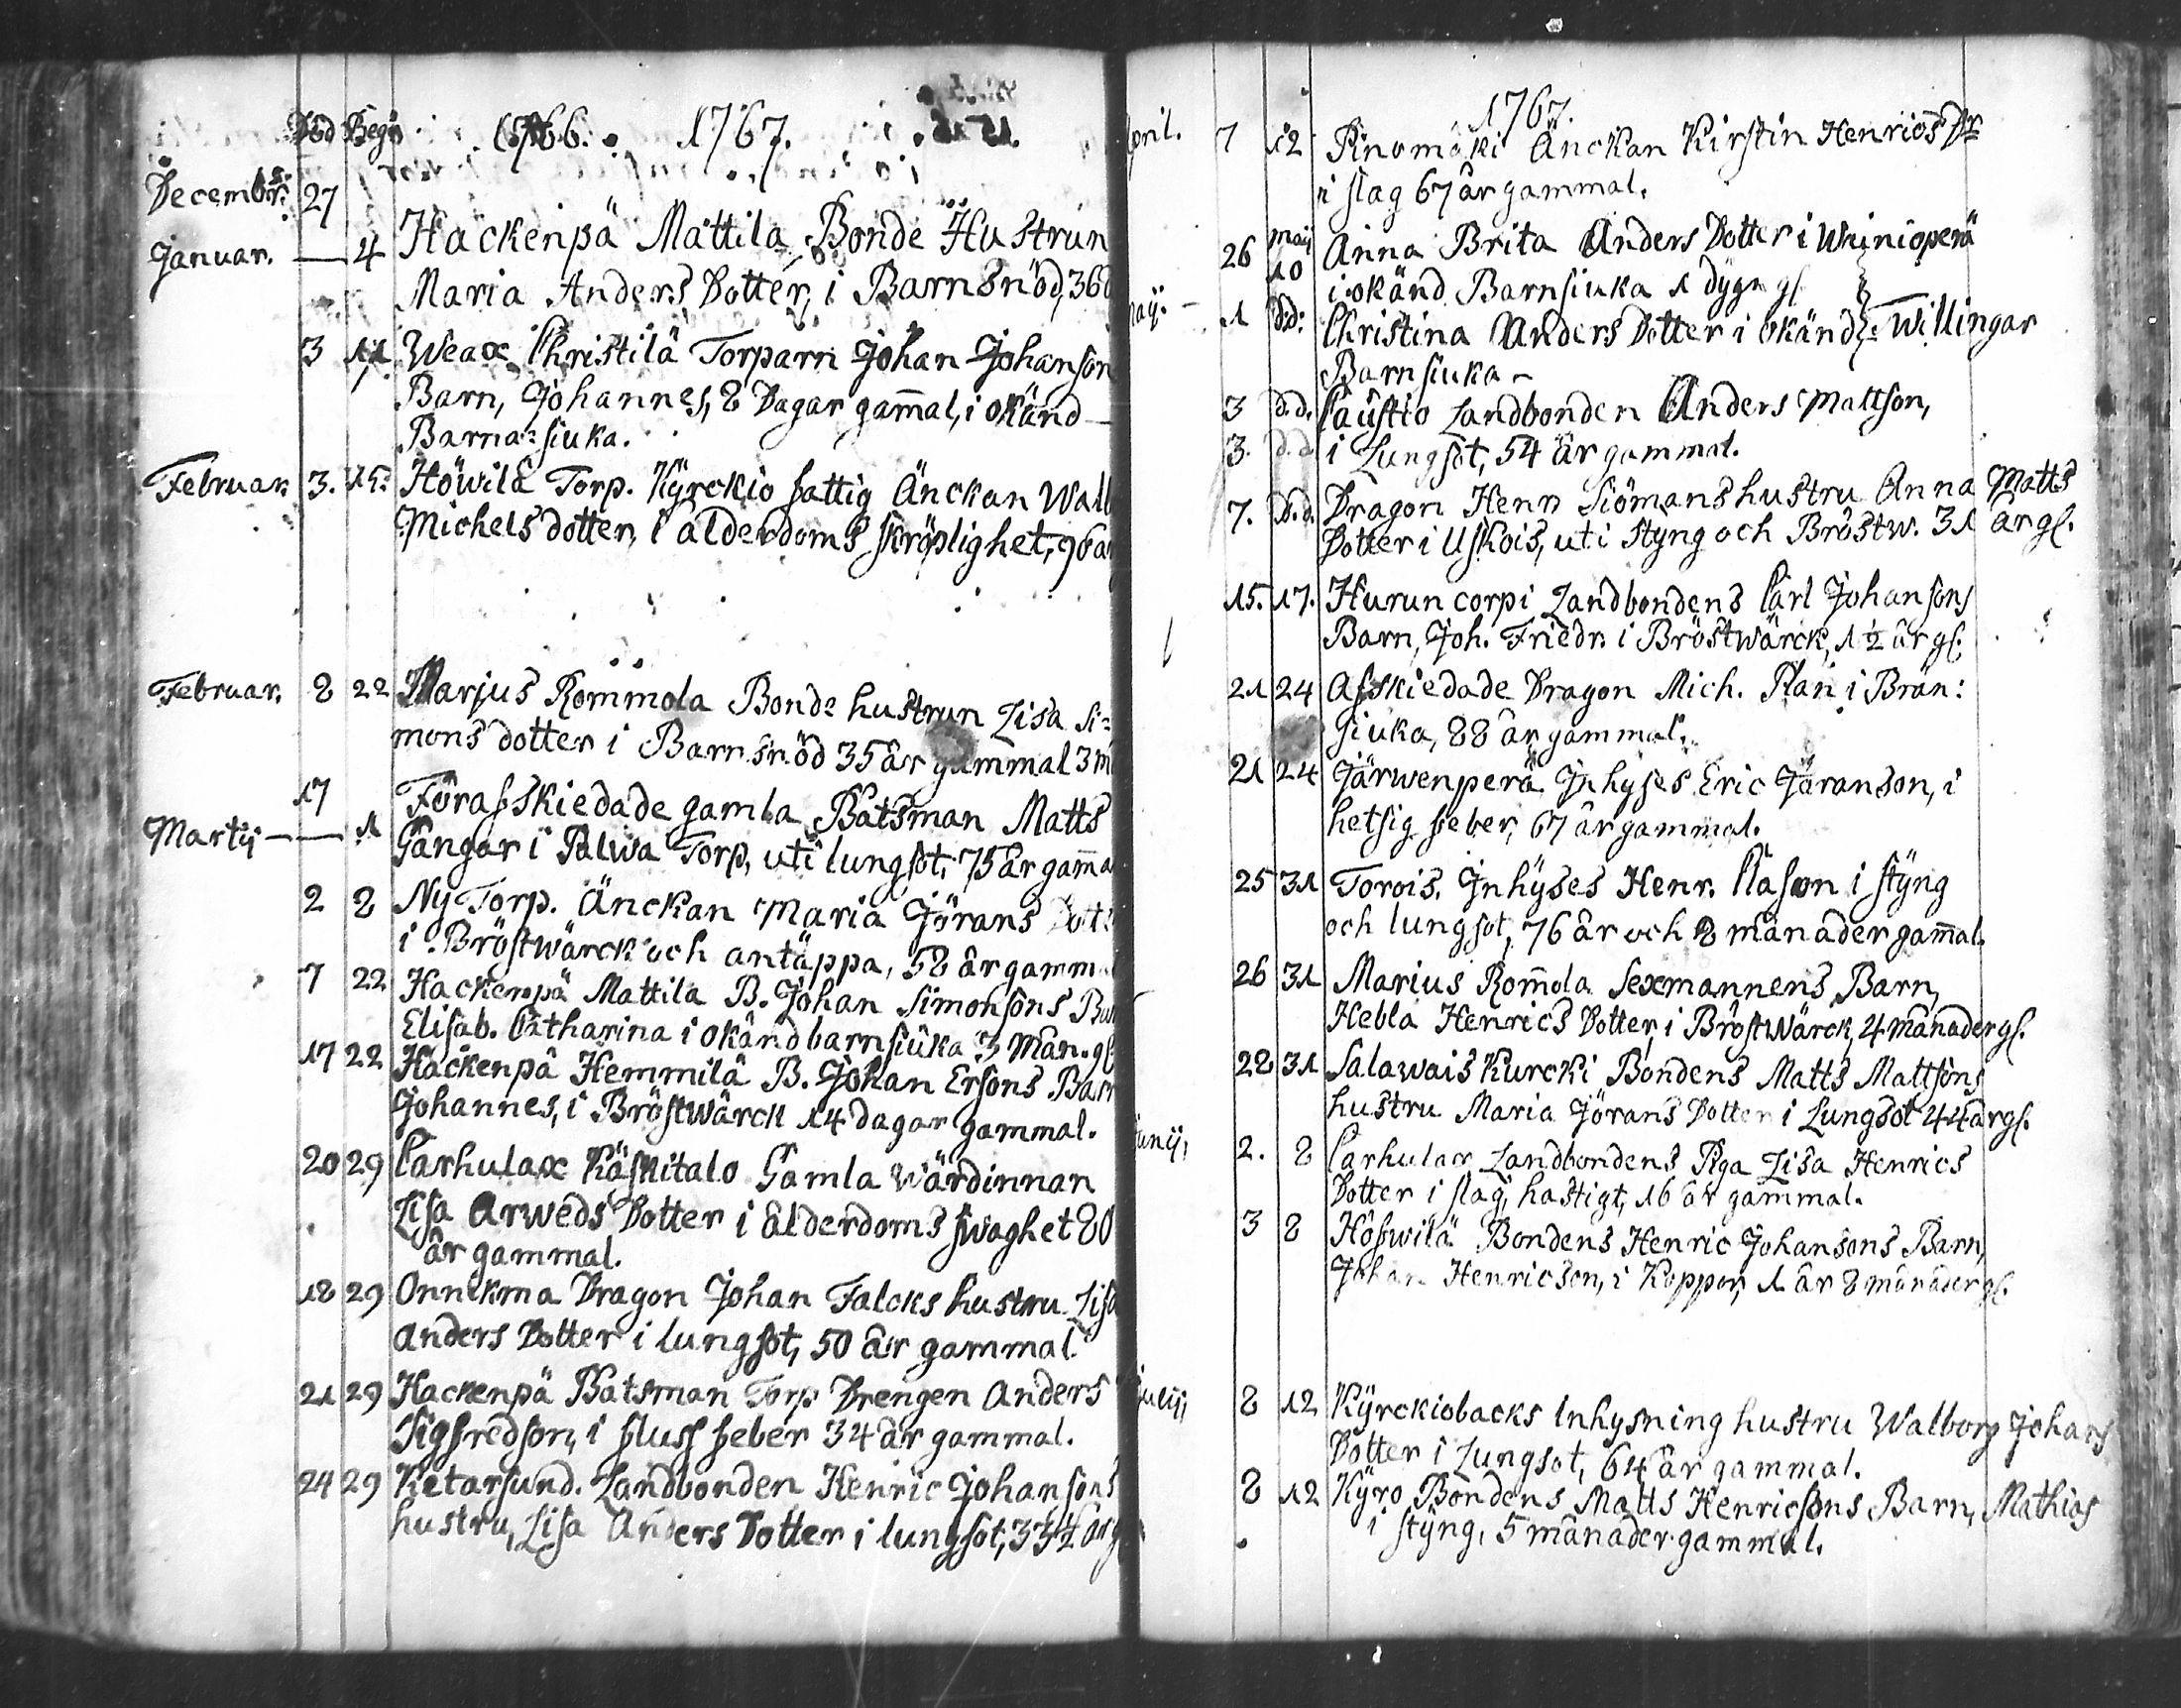 Död Begr. 1766. 1767.
December 27
Januar. — 4 Hackenpä Mattila Bonde Hustrun
Maria Anders Dotter, i Barnsnöd, 36
3 11 Weax Christilä Torparn Johan Johanson
Barn, Johannes, 8 Dagar gam̄al, i okänd
Barna siuka.
Februar. 3. 15. Höwilä Torp. Kÿrckio fattig Änckan
Michels dotter, i ålderdoms skröplighet, 96
Februar. 8 22 Marjus Rommola Bonde hustrun Lisa Si=
mons dotter i Barnsnöd 35 år gammal 3
17 Förafskiedade gamla Båtsman Matts
Martij — — 1 Gångar i Palwa Torp, uti lungsot, 75 år
2 8 Nÿ Torp. Änckan Maria Jörans
i Bröstwärck och antäppa, 58 år
7 22 Hackenpä Mattila B. Johan Simonsons
Elisab. Catharina i okänd barnsiuka 3 mån. gl
17 22 Hackenpä Hemmilä B. Johan Ersons Barn
Johannes, i Bröstwärck 14 dagar gammal.
20 29 Carhulax Käskitalo Gamla Wärdinnan
Lisa Arweds Dotter i ålderdoms swaghet 80
år gammal.
18 29 Onnikma Dragon Johan Falcks hustru Lisa
Anders Dotter i lungsot, 50 år gammal
21 29 Hackenpä Båtsman Torp Drengen Anders
Sigfredson, i fluss feber 34 år gammal.
24 29 Ketarsund. Landbonden Henric Johansons
hustru, Lisa Anders Dotter i lungsot, 33½ år
1767.
April. 7 12 Pinomäki Änckan Kirstin Henrics Dr
i slag 67 år gammal.
26 maij 10 Anna Brita Anders Dotter i Whinioperä
i okänd Barnsiuka 1 dygn gl
maij. — 1 d:d: Christina Anders Dotter i okänd Twillingar
Barnsiuka —
3 d.d. Caustio Landbonden Anders Mattson,
3. d.d i Lungsot, 54 år gammal.
7. d.d. Dragon Henr Siömans hustru Anna Matts
Dotter i Uskois, uti styng och Bröstw. 31 år gl.
15. 17. Huruncorpi Landbondens Carl Johansons
Barn, Joh. Friedr. i Bröstwärck, 1½ år gl.
21 24 Afskiedade Dragon Mich. Plan i Brän:
siuka, 88 år gammal.
21 24 Järwenperä Inhyses Eric Jöranson, i
hetsig feber, 67 år gammal.
25 31 Torois. Inhÿses Henr. Clason i stÿng
och lungsot, 76 år och 8 månader gam̄al.
26 31 Marius Rom̄ola Sexmannens Barn,
Hebla Henrics Dotter, i Bröstwärck, 4 månader gl.
28 31 Salawais Kurcki Bondens Matts Mattsons
hustru Maria Jörans Dotter i Lungsot 44 år gl.
Junij, 2. 8 Carhulax Landbondens Piga Lisa Henrics
Dotter i slag, hastigt, 16 år gammal.
3 8 Höfwilä Bondens Henric Johansons Barn,
Johan Henricson, i Koppor, 1 år 8 månader gl.
Julij, 8 12 Kÿrckiobacks Inhysning hustru Walborg Johans
Dotter i Lungsot, 64 år gammal.
8 12 Kÿro Bondens Matts Henricsons Barn, Mathias
i stÿng, 5 månader gammal.